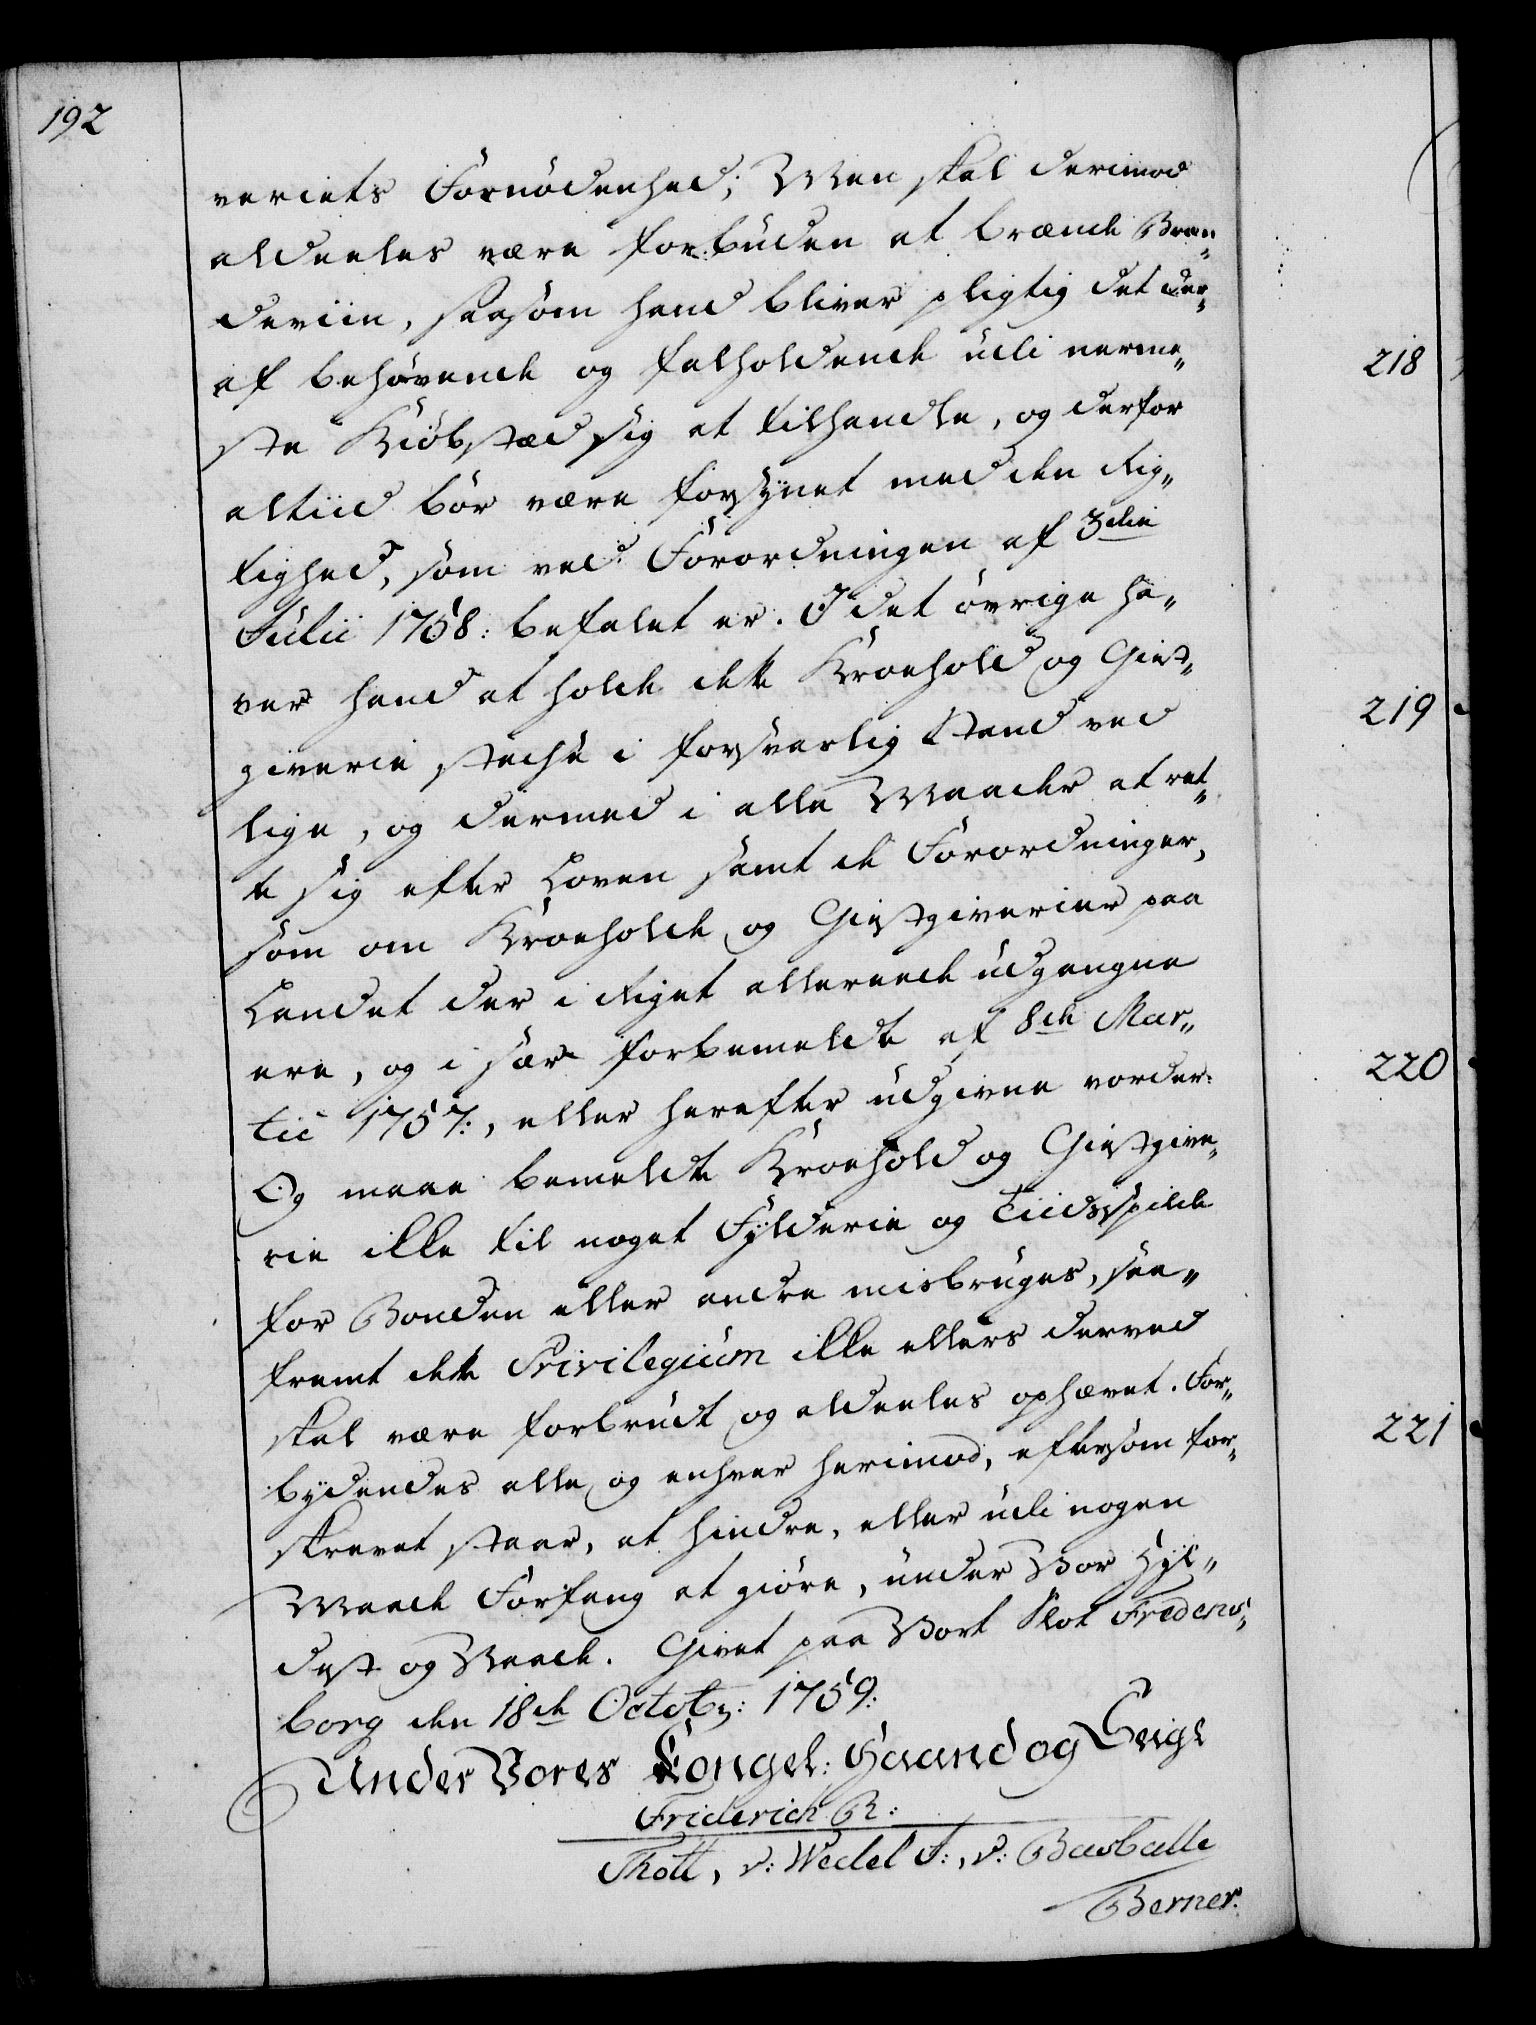 192
veriets Fornödenhed; Men skal derimod
aldeeles være forbuden at brænde Bræn„
deviin, saasom hand bliver pligtig det der„
af behøvende og falholdende udi nerme„
ste Kiöbstæd sig at tilhandle, og derfor
altiid bör være forsÿnet med den Rig„
tighed, som ved Forordningen af 3die
Julii 1758: befalet er. I det övrige ha„
ver hand at holde dette Kroehold og Giest„
giverie stedse i forsvarlig Stand ved
lige, og dermed i alle Maader at ret„
te sig efter Loven samt de Forordninger,
som om Kroeholde og Giestgiverier paa
Landet der i Riget allereede udgangne
ere, og i sær forbemeldte af 8de Mar„
tii 1757:, eller herefter udgivne vorder.
Og maae bemeldte Kroehold og Giestgive„
rie ikke til noget Fÿlderie og Tiidsspilde
for Bonden eller andre misbruges, saa„
fremt dette Privilegium ikke ellers derved
skal være forbrudt og aldeeles ophævet. For„
bÿdendes alle og enhver herimod, eftersom for„
skrevet staar, at hindre, eller udi nogen
Maade Forfang at giöre, under Vor Hÿl„
dest og Naade. Givet paa Vort Slot Fredens„
borg den 18de Octobr: 1759:
Under Vores Kongel: Haand og Seigl
Friderich R:
Thott, v: Wedel F:, v: Basballe
Berner.
218
219
220
221